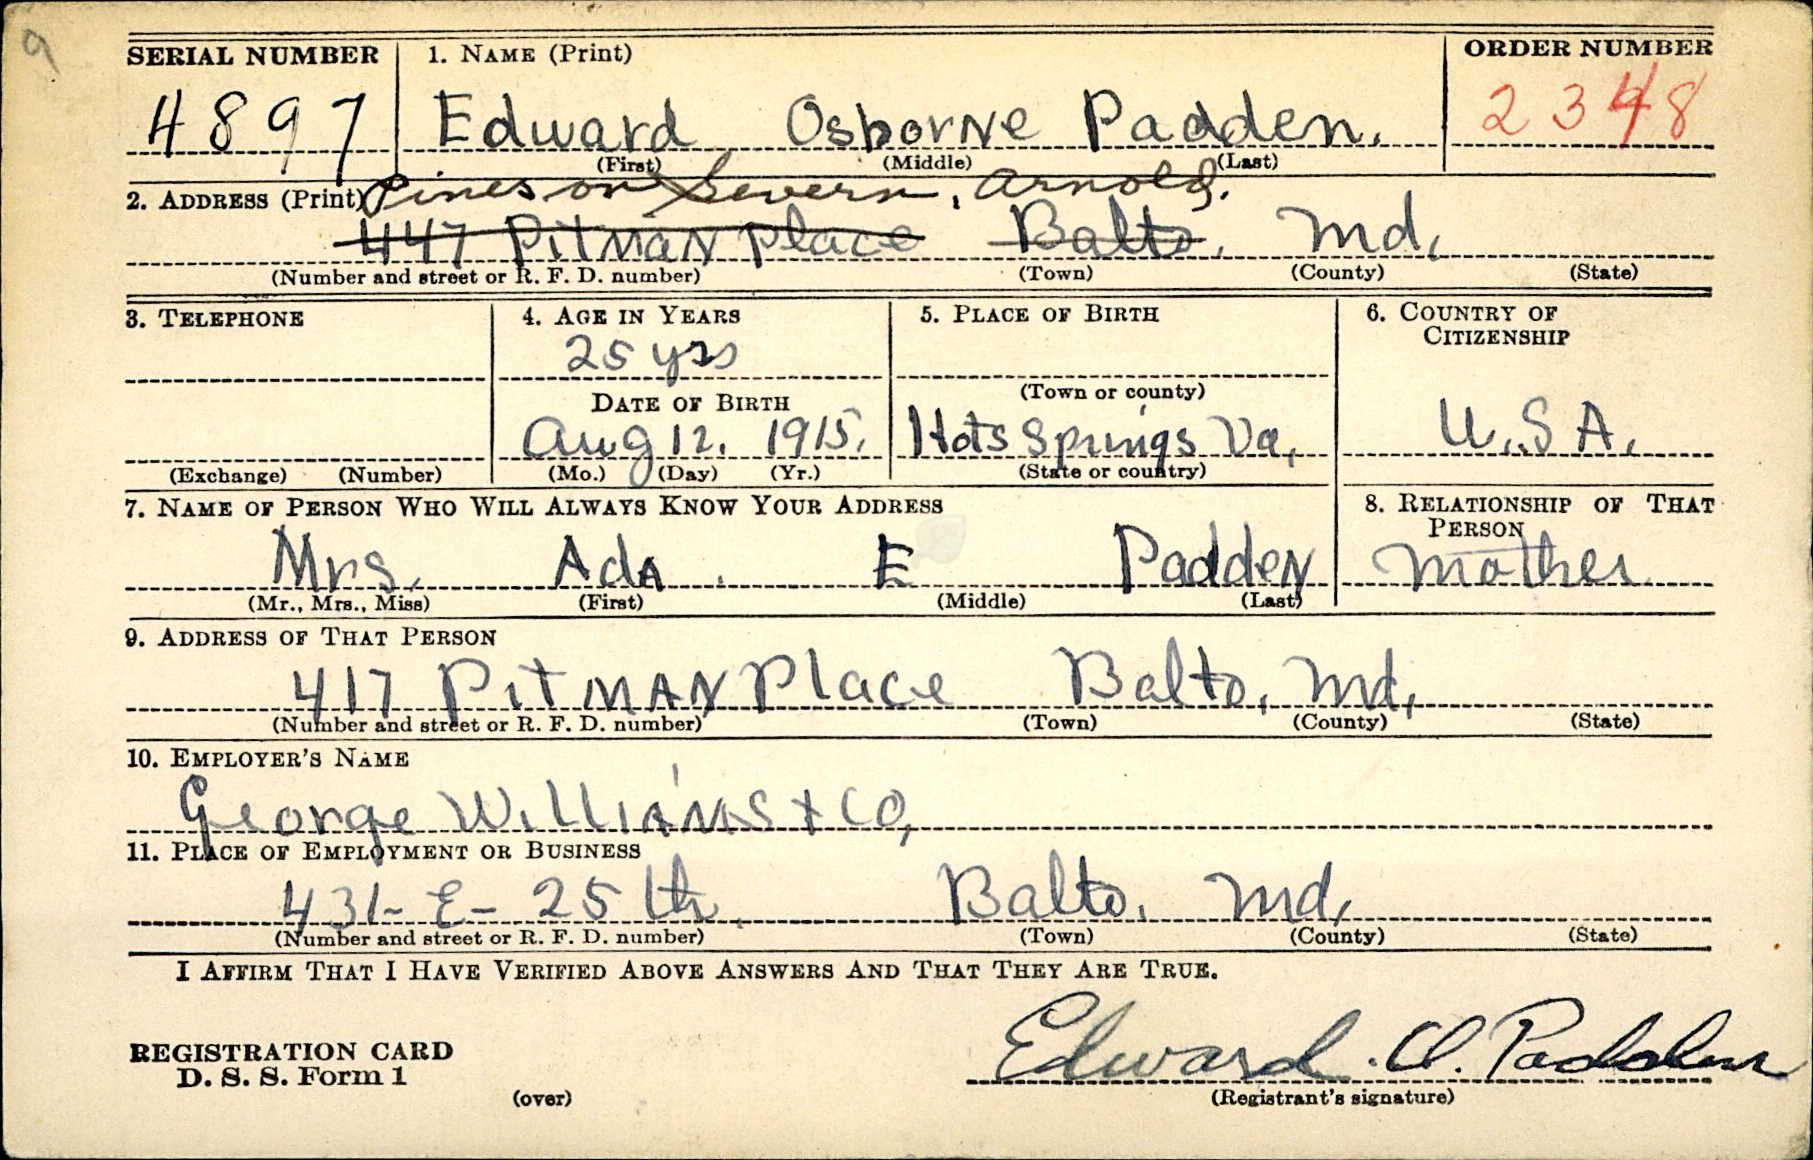 9
SERIAL NUMBER 1. NAME (Print) ORDER NUMBER
4897 Edward Osborne Padden. 2348
(First) (Middle) (Last)
2. ADDRESS (Print) Pines on Severn, Arnold.
447 Pitman Place Balto, Md,
(Number and street or R. F. D. number) (Town) (County) (State)
3. TELEPHONE 4. AGE IN YEARS 5. PLACE OF BIRTH 6. COUNTRY OF
CITIZENSHIP
25 yrs
(Town or county)
DATE OF BIRTH
Aug 12. 1915. Hots Springs Va, U.S A.
(Exchange) (Number) (Mo.) (Day) (Yr.) (State or country)
7. NAME OF PERSON WHO WILL ALWAYS KNOW YOUR ADDRESS 8. RELATIONSHIP OF THAT
PERSON
Mrs. Ada. E Padden Mother
(Mr., Mrs., Miss) (First) (Middle) (Last)
9. ADDRESS OF THAT PERSON
417 Pitman Place Balto, Md,
(Number and street or R. F. D. number) (Town) (County) (State)
10. EMPLOYER'S NAME
George Williams + Co,
11. PLACE OF EMPLOYMENT OR BUSINESS
431- E- 25 th. Balto. Md,
(Number and street or R. F. D. number) (Town) (County) (State)
I AFFIRM THAT I HAVE VERIFIED ABOVE ANSWERS AND THAT THEY ARE TRUE.
REGISTRATION CARD
D. S. S. Form 1
Edward O. Padden
(over) (Registrant's signature)